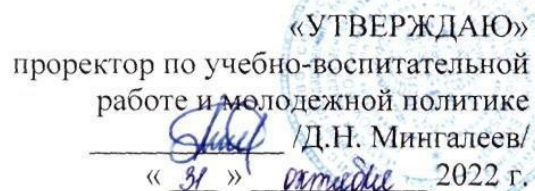 «УТВЕРЖДАЮ»
проректор по учебно-воспитательной
работе и молодежной политике
/Д.Н. Мингалеев/
« 31 » октября 2022 г.